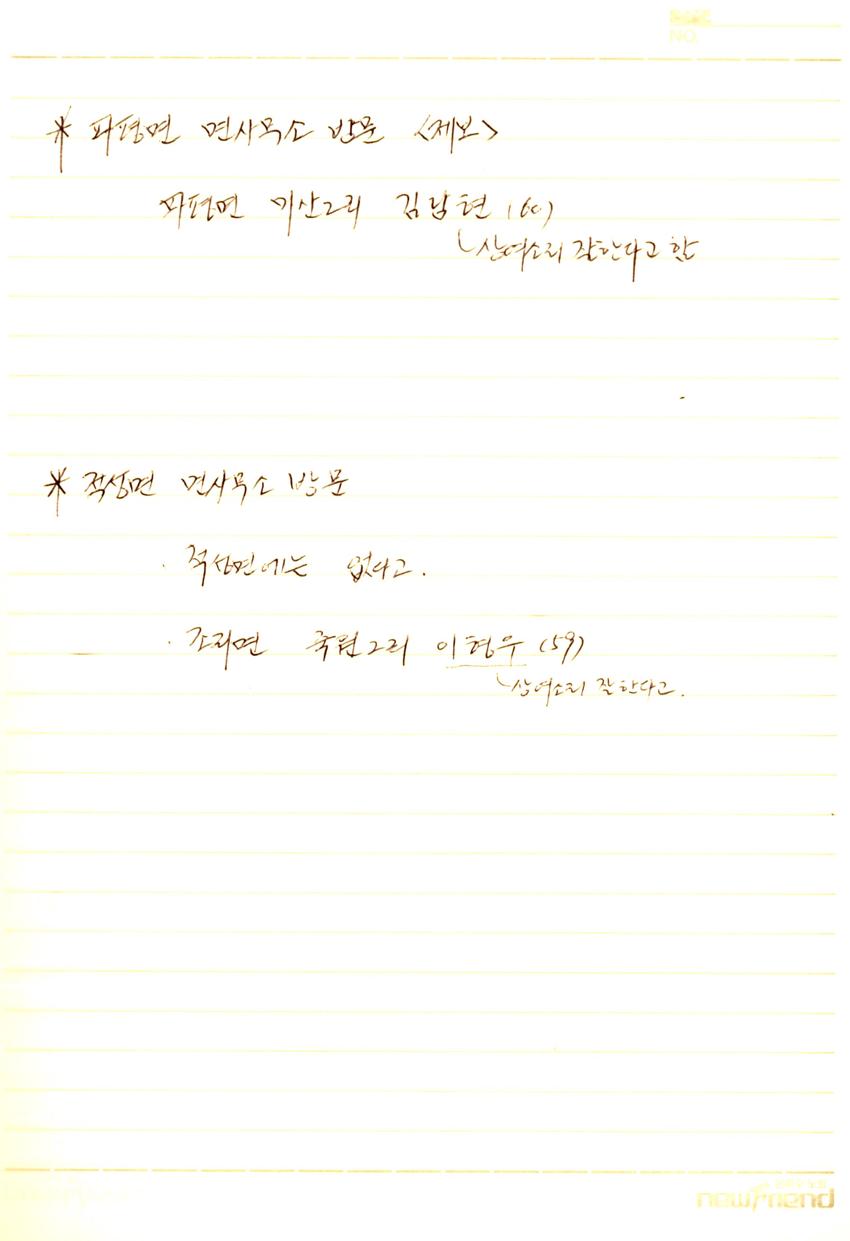 NO.
* 파평면 면사무소 방문 <제보>
파평면 마산2리 김남현 (60)
상여소리 잘한다고 함
* 적성면 면사무소 방문
· 적성면에는 없다고.
· 조리면 국원2리 이형우 (59)
상여소리 잘한다고.
newfriend